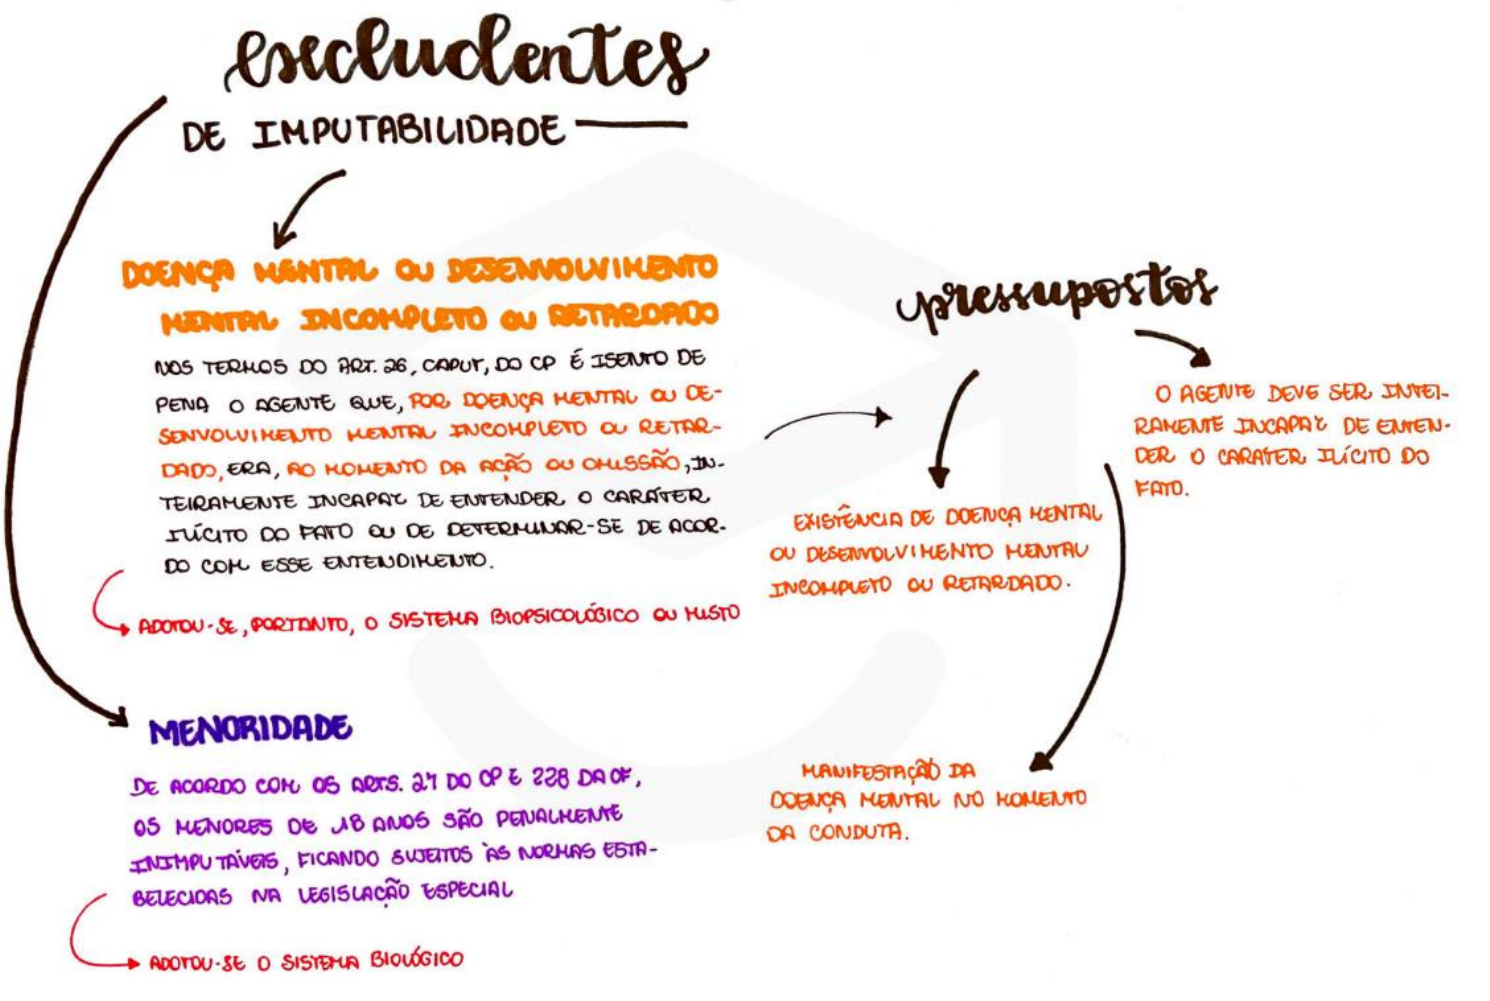 excludentes
DE IMPUTABILIDADE
DOENÇA MENTAL OU DESENVOLVIMENTO
MENTAL INCOMPLETO OU RETARDADO
NOS TERMOS DO ART. 26, CAPUT, DO CP É ISENTO DE
PENA O AGENTE QUE, POR DOENÇA MENTAL OU DE-
SENVOLVIMENTO MENTAL INCOMPLETO OU RETAR-
DADO, ERA, AO MOMENTO DA AÇÃO OU OMISSÃO, IN-
TEIRAMENTE INCAPAZ DE ENTENDER O CARÁTER
ILÍCITO DO FATO OU DE DETERMINAR-SE DE ACOR-
DO COM ESSE ENTENDIMENTO.
ADOTOU-SE, PORTANTO, O SISTEMA BIOPSICOLÓGICO OU MISTO
MENORIDADE
DE ACORDO COM OS ARTS. 27 DO CP E 228 DA CF,
OS MENORES DE 18 ANOS SÃO PENALMENTE
INIMPUTÁVEIS, FICANDO SUJEITOS ÀS NORMAS ESTA-
BELECIDAS NA LEGISLAÇÃO ESPECIAL
ADOTOU-SE O SISTEMA BIOLÓGICO
pressupostos
O AGENTE DEVE SER INTEI-
RAMENTE INCAPAZ DE ENTEN-
DER O CARATER ILÍCITO DO
FATO.
EXISTÊNCIA DE DOENÇA MENTAL
OU DESENVOLVIMENTO MENTAL
INCOMPLETO OU RETARDADO.
MANIFESTAÇÃO DA
DOENÇA MENTAL NO MOMENTO
DA CONDUTA.